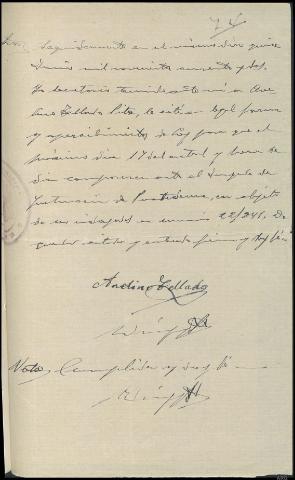 74
Seguidamente en el mismo día quince
Junio mil novecientos cuarenta y dos.
Yo Secretario teniendo ante mi a Ave
lino Tellado Pita, le cité en legal forma
y apercibimientos de ley para que el
próximo día 17 del actual y hora de
diez comparezca ante el Juzgado de
Instrucción de Pontedeume, con objeto
de ser indagado en sumario 22/941. De
quedar citado y enterado firma y doy fé=
Avelino Tellado
Nota, Cumplido y doy fé=